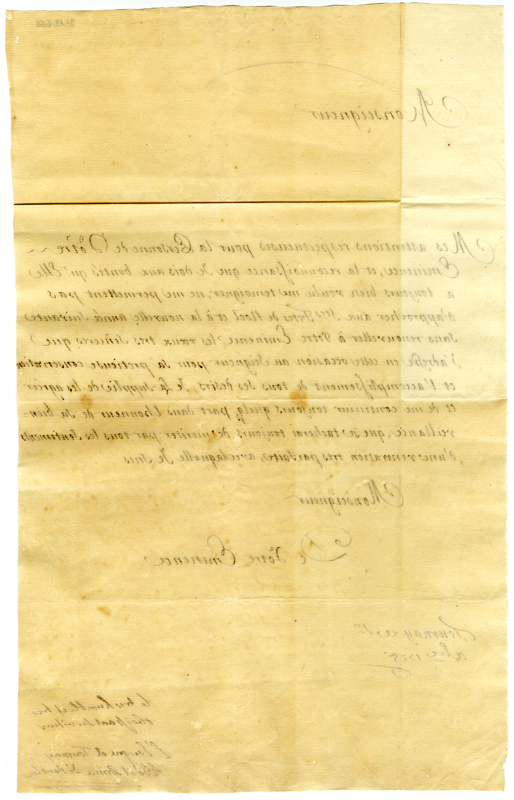 Monseigneur
Mes attentions respectueuses pour la Personne de Vôtre
Eminence, et la reconnoissance que je dois aux bontés qu'Elle
a toujours bien voulu me temoigner, ne me permettent pas
d'approcher aux Stes Fetes de Noel et à la nouvelle année Suivante
sans renouveller à Vôtre Eminence les vœux tres Sinceres que
j'adresse en cette occasion au Seigneur pour sa pretieuse conservation
et l'accomplissement de tous ses desirs. Je La Supplie de les agréer
et de me continuer toujours quelq. part dans l'honneur de sa bien-
veillance, que je tacherai toujours de meriter par tous les Sentiments
d'une veneration tres parfaite, avec laquelle Je suis
Monseigneur
De Votre Eminence
Tournay ce
Le tres humble et tres
obeissant serviteur
L'Eveque de Tournai